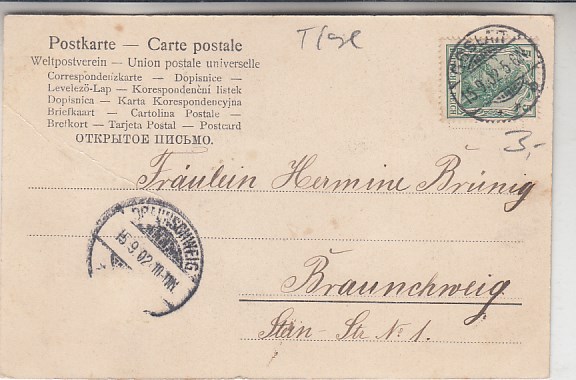 Postkarte — Carte postale
Weltpostverein — Union postale universelle
Correspondenzkarte — Dopisnice —
Levelező-Lap — Korespondenční listek
Dopisnica — Karta Korespondencyjna
Briefkaart — Cartolina Postale —
Brefkort — Tarjeta Postal — Postcard
ОТКРЫТОЕ ПИСЬМО.
3,-
Fräulein Hermine Brünig
BRAUNSCHWEIG
15.9.02
Braunchweig
Str. № 1.